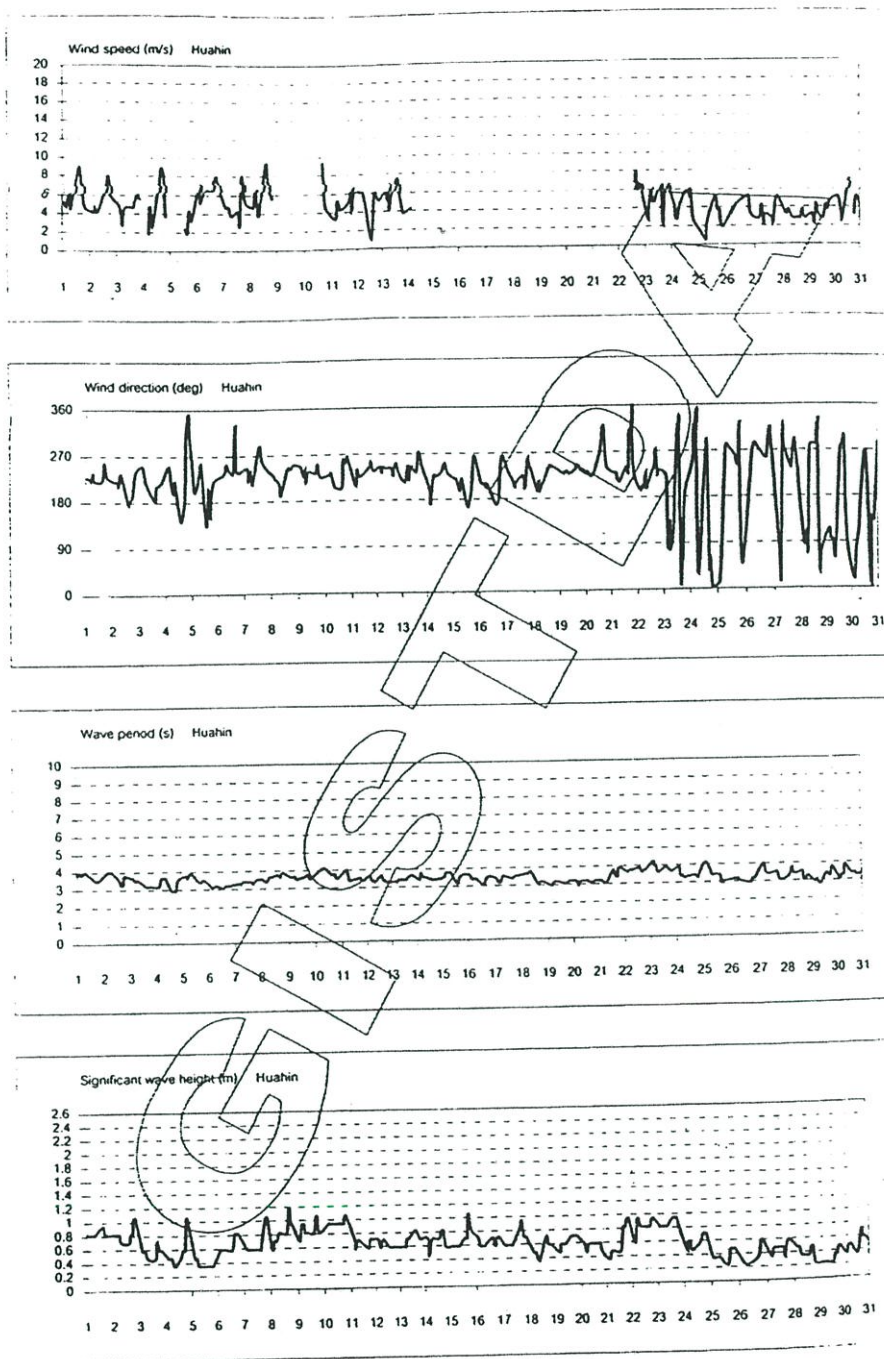 Wind speed (m/s) Huahin
20
18
16
14
12
10
8
6
4
2
0
1 2 3 4 5 6 7 8 9 10 11 12 13 14 15 16 17 18 19 20 21 22 23 24 25 26 27 28 29 30 31
Wind direction (deg) Huahin
360
270
180
90
0
1 2 3 4 5 6 7 8 9 10 11 12 13 14 15 16 17 18 19 20 21 22 23 24 25 26 27 28 29 30 31
Wave period (s) Huahin
10
9
8
7
6
5
4
3
2
1
0
1 2 3 4 5 6 7 8 9 10 11 12 13 14 15 16 17 18 19 20 21 22 23 24 25 26 27 28 29 30 31
Significant wave height (m) Huahin
2.6
2.4
2.2
2
1.8
1.6
1.4
1.2
1
0.8
0.6
0.4
0.2
0
1 2 3 4 5 6 7 8 9 10 11 12 13 14 15 16 17 18 19 20 21 22 23 24 25 26 27 28 29 30 31
GISTDA